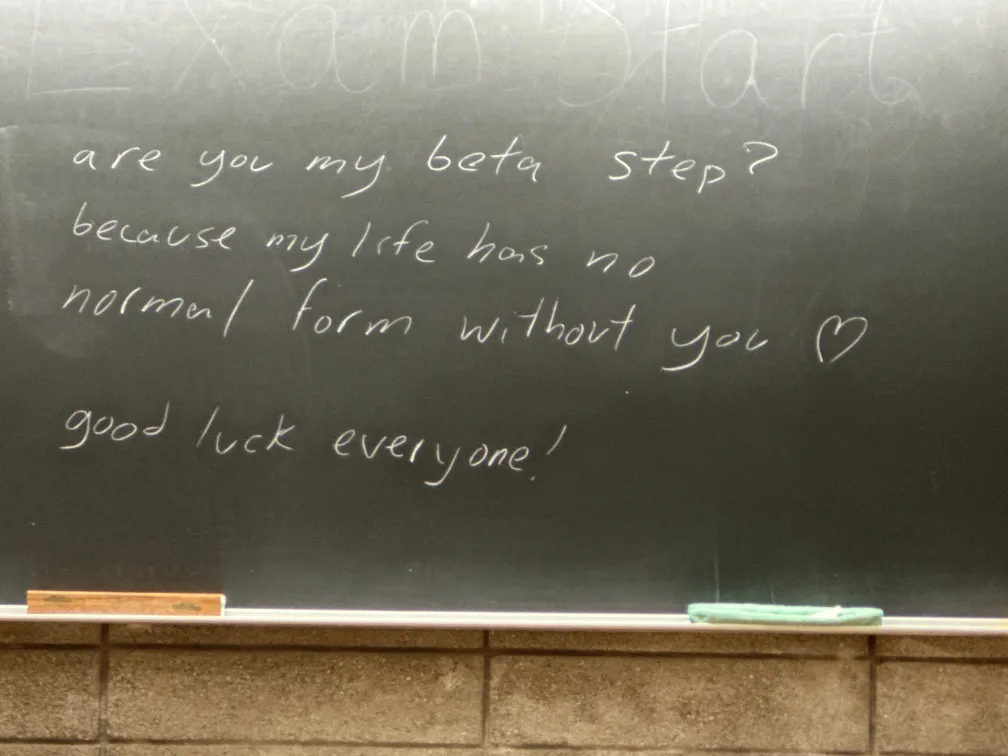 Exam Start
are you my beta step?
because my life has no
normal form without you ♡
good luck everyone!